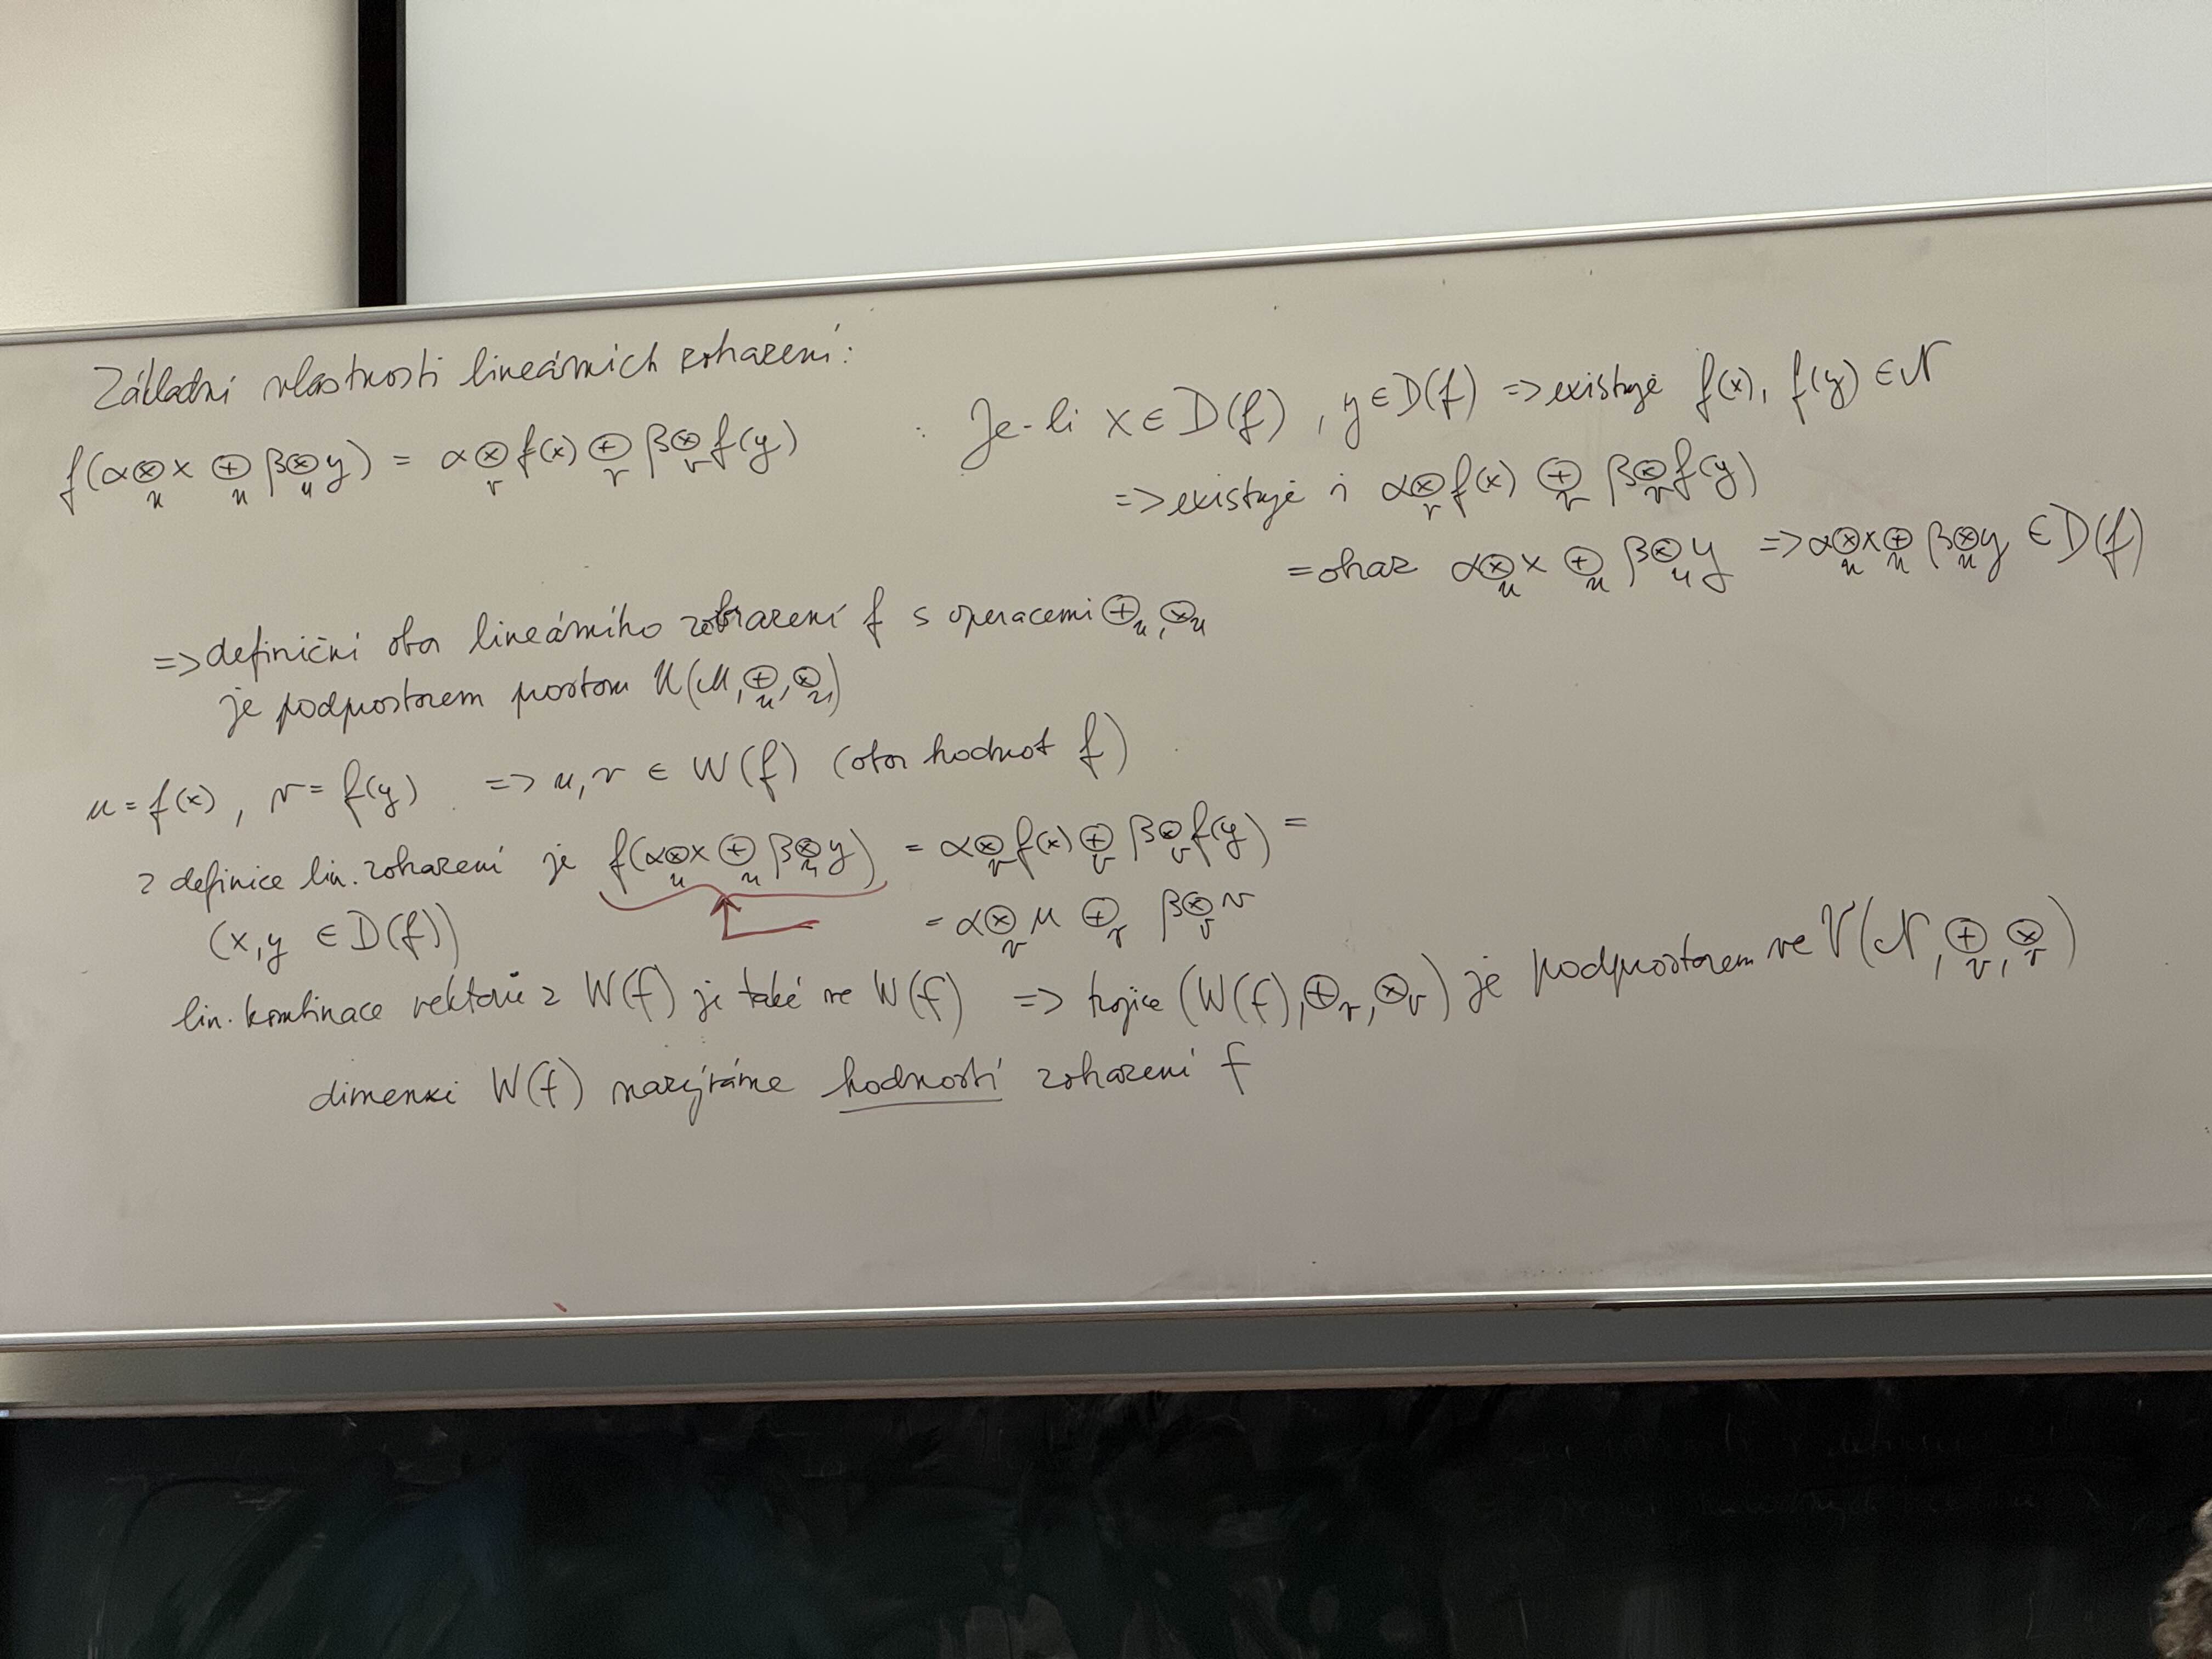 Základní vlastnosti lineárních zobrazení:
f(α⊗ᵤx ⊕ᵤ β⊗ᵤy) = α⊗ᵥf(x) ⊕ᵥ β⊗ᵥf(y)
: Je-li x ∈ D(f), y ∈ D(f) => existuje f(x), f(y) ∈ N
=> existuje i α⊗ᵥf(x) ⊕ᵥ β⊗ᵥf(y)
= obraz α⊗ᵤx ⊕ᵤ β⊗ᵤy => α⊗ᵤx ⊕ᵤ β⊗ᵤy ∈ D(f)
=> definiční obor lineárního zobrazení f s operacemi ⊕ᵤ, ⊗ᵤ
je podprostorem prostoru U(M, ⊕ᵤ, ⊗ᵤ)
u = f(x), v = f(y) => u, v ∈ W(f) (obor hodnot f)
z definice lin. zobrazení je f(α⊗ᵤx ⊕ᵤ β⊗ᵤy) = α⊗ᵥf(x) ⊕ᵥ β⊗ᵥf(y) =
(x, y ∈ D(f)) = α⊗ᵥu ⊕ᵥ β⊗ᵥv
lin. kombinace vektorů z W(f) je také ve W(f) => trojice (W(f), ⊕ᵥ, ⊗ᵥ) je podprostorem ve V(N, ⊕ᵥ, ⊗ᵥ)
dimenzi W(f) nazýváme hodností zobrazení f